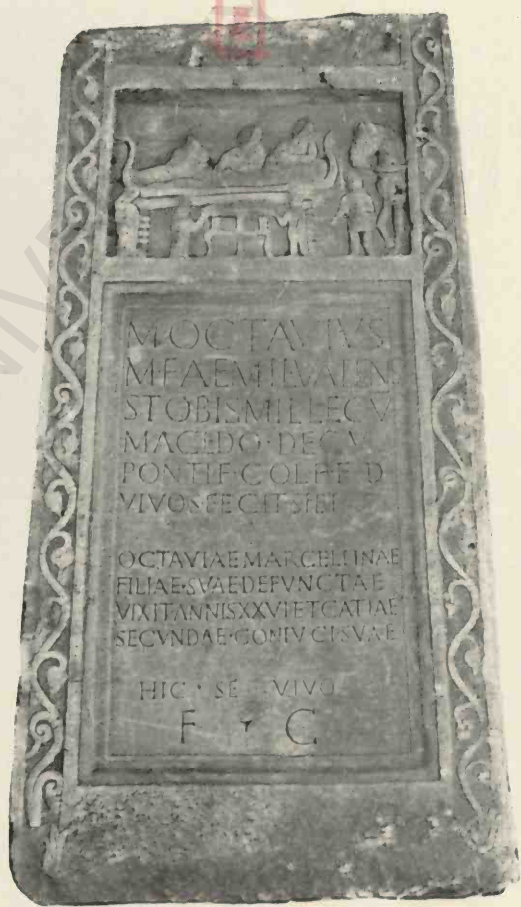 M·OCTAVIVS
M·F·AEMIL·VALENS
STOBIS·MIL·LEG·V
MACEDO·DEC·
PONTIF·COL·F·F·D
VIVOS·FECIT·SIBI
OCTAVIAE MARCELLINAE
FILIAE·SVAE DEFVNCTAE
VIXIT ANNIS XXVI ET CATIAE
SECVNDAE·CONIVGI SVAE
HIC · SE VIVO
F C